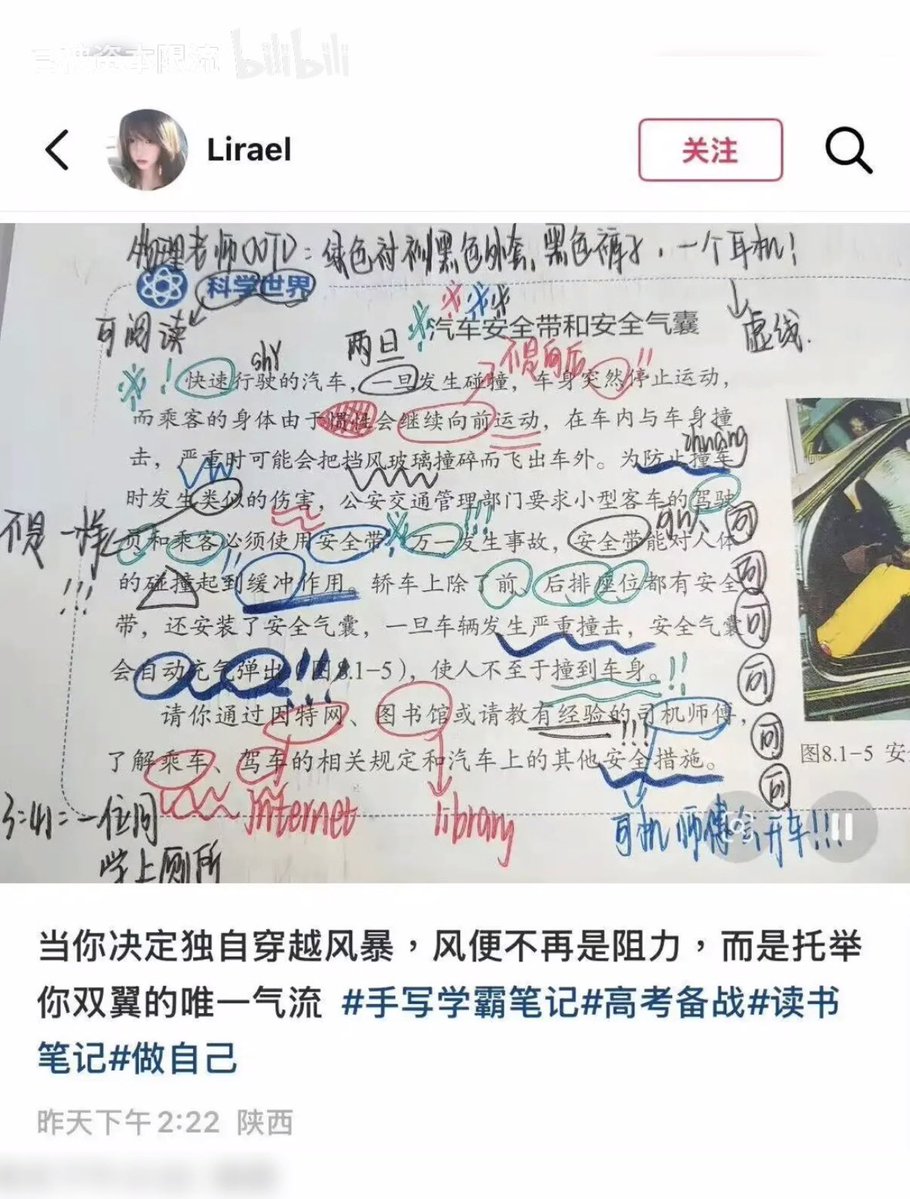 bilibili
Lirael
关注
物理老师OOTD：绿色衬衫黑色外套，黑色裤子，一个耳机！
科学世界
可阅读
汽车安全带和安全气囊
虚线.
两旦
不是向后!!
shǐ
快速行驶的汽车，一旦发生碰撞，车身突然停止运动，
而乘客的身体由于惯性会继续向前运动，在车内与车身撞
击，严重时可能会把挡风玻璃撞碎而飞出车外。为防止撞车
zhuàng
时发生类似的伤害，公安交通管理部门要求小型客车的驾驶
不是一样!!!
员和乘客必须使用安全带。万一发生事故，安全带能对人体
的碰撞起到缓冲作用。轿车上除了前、后排座位都有安全
带，还安装了安全气囊，一旦车辆发生严重撞击，安全气囊
会自动充气弹出（图8.1-5），使人不至于撞到车身。
请你通过因特网、图书馆或请教有经验的司机师傅，
了解乘车、驾车的相关规定和汽车上的其他安全措施。
图8.1-5 安
3:41=一位同
学上厕所
internet
library
司机师傅会开车!!!
当你决定独自穿越风暴，风便不再是阻力，而是托举
你双翼的唯一气流 #手写学霸笔记#高考备战#读书
笔记#做自己
昨天下午2:22 陕西